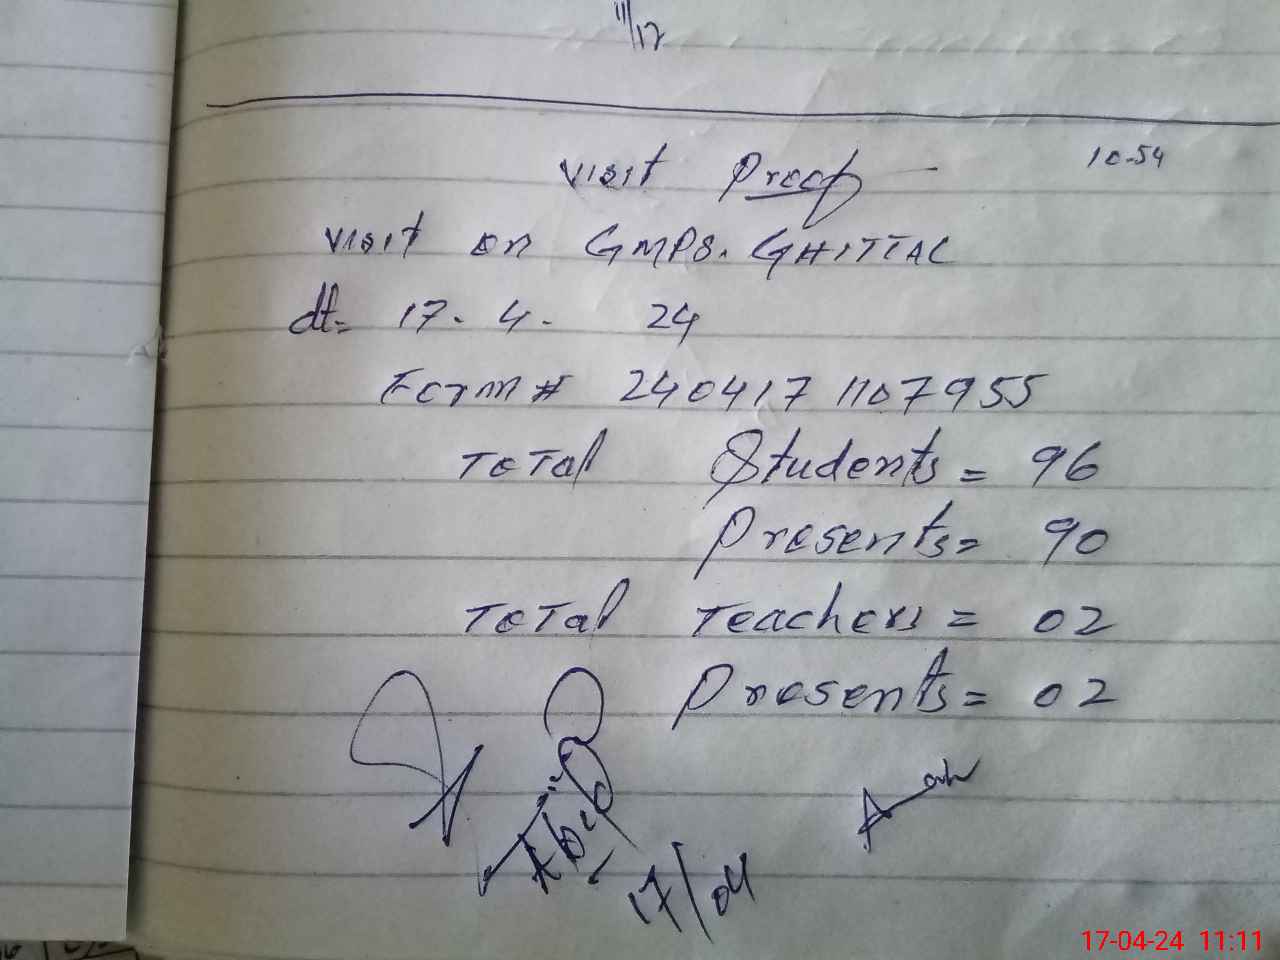 11/12
Visit Proof 10-54
Visit on GMPS. GHITTAL
dt= 17-4- 24
Form # 2404171107955
Total Students = 96
Presents = 90
Total Teachers = 02
Presents = 02
17/04
17-04-24 11:11